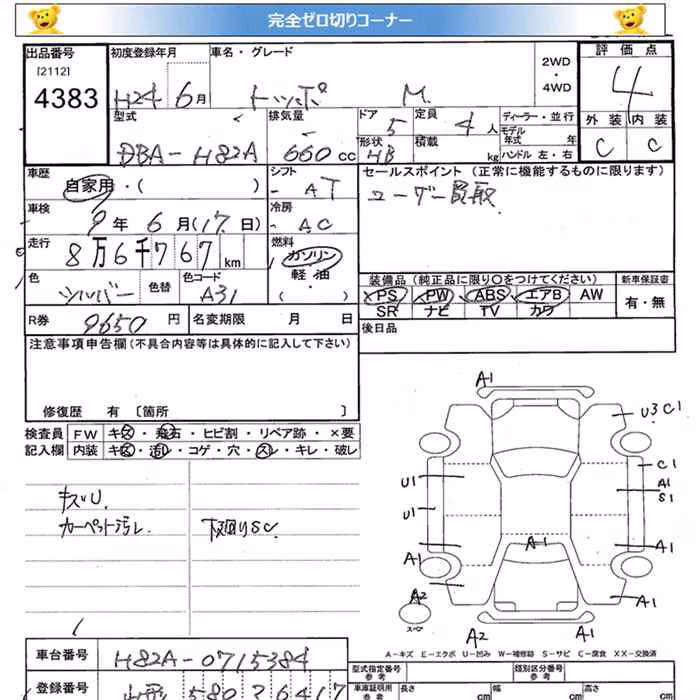 完全ゼロ切りコーナー
出品番号
[2112]
4383
初度登録年月
H24 6月
車名・グレード
トッポ M
2WD
・
4WD
評価点
4
型式
DBA-H82A
排気量
660 cc
ドア
5
定員
4 人
形状
HB
積載
kg
ディーラー・並行
モデル年式 年
ハンドル 左・右
外装 内装
C C
車歴
自家用・( )
シフト
AT
セールスポイント(正常に機能するものに限ります)
ユーザー買取
車検
9年 6月(17日)
冷房
AC
走行
8万6千767km
燃料
ガソリン
軽・油
( ・ )
色
シルバー
色替
色コード
A31
装備品(純正品に限り〇をつけてください)
PS PW ABS エアB AW
SR ナビ TV カワ
新車保証書
有・無
R券
9650円
名変期限 月 日
後日品
注意事項申告欄(不具合内容等は具体的に記入して下さい)
修復歴 有 [箇所 ]
検査員 FW キズ・飛石・ヒビ割・リペア跡・×要
記入欄 内装 キズ・汚レ・コゲ・穴・スレ・キレ・破レ
キズU.
カーペット汚レ 下廻りSC
A1
U3 C1
C1
U1
A1
S1
U1
A1
A1
A1
A2
A1
スペア
A2
A1
A-キズ E-エクボ U-凹み W-補修跡 S-サビ C-腐食 XX-交換済
車台番号
H82A-0715384
型式指定番号
参考
類別区分番号
参考
登録番号
山形 580 26417
車庫証明用
参考
長さ cm
幅 cm
高さ cm